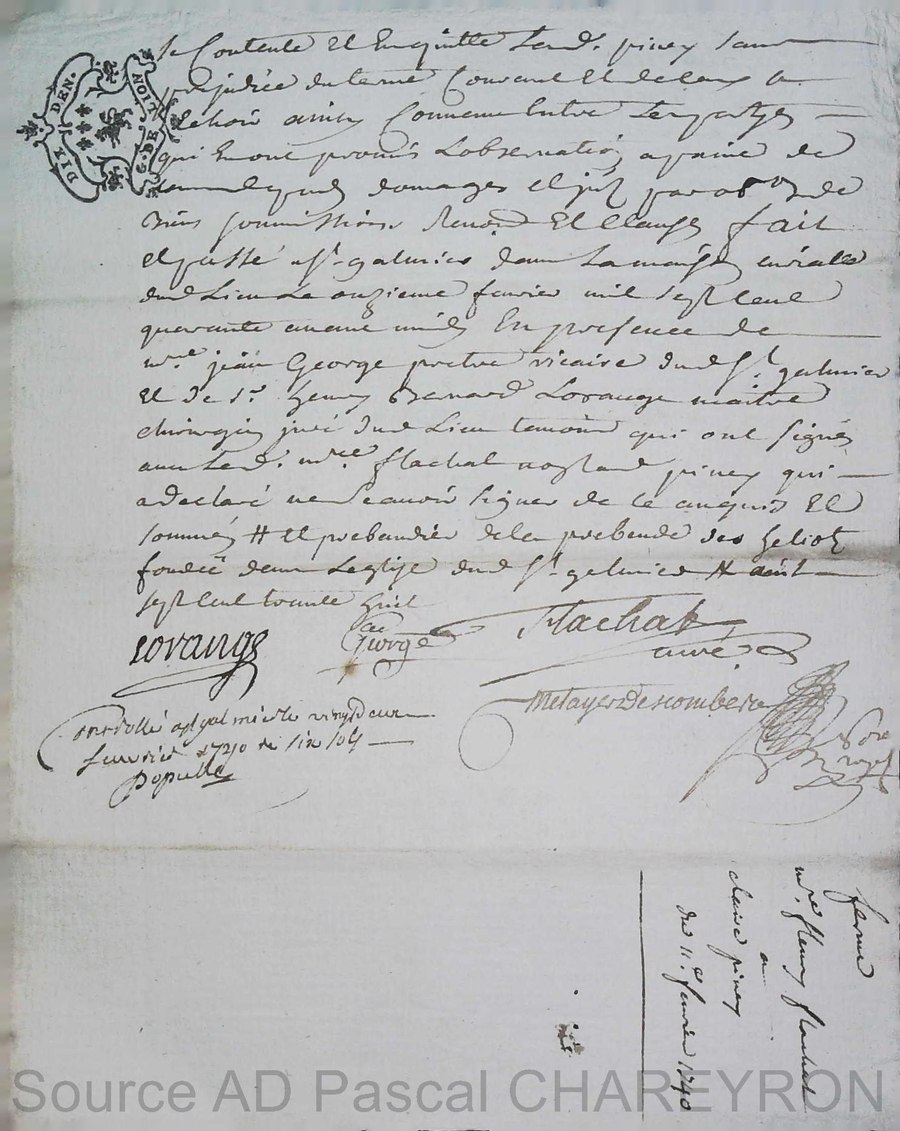 se Contente Et En quitte Lend. piney sans
prejudice du terme Courant Et de ceux a
Echoir ainsy Convenu Entre Les partyes
qui En ont promis L'observation a paine de
tous despends domages et
biens soummissions Renon Et Clauses fait
et passé a St. galmier dans La maison curialle
dud. Lieu Le onzieme fevrier mil sept Cent
quarante avant midy En presence de
mre. jean George pretre vicaire dud St. galmier
Et de Sr. henry Benard Lorange maitre
chirurgien juré dud Lieu temoins qui ont signés
avec Led. mre Flachat non Led piney qui
a declaré ne scavoir signer de ce enquis Et
sommé # et prebandier de la prebande des heliots
fondée dans L'eglise dud St. galmier #
sept Cent trente huit
Lorange
George
Flachat
curé
Metayer Descombes
no.re
royal
Controllé a St galmier le vingt deux
feuvrier 1740 Rc six sols
Populle
DIE. DEN.
G. DE
LION
ferme
mre. fleury flachat
a
claire piney
du 11e. fevrier 1740
Source AD Pascal CHAREYRON